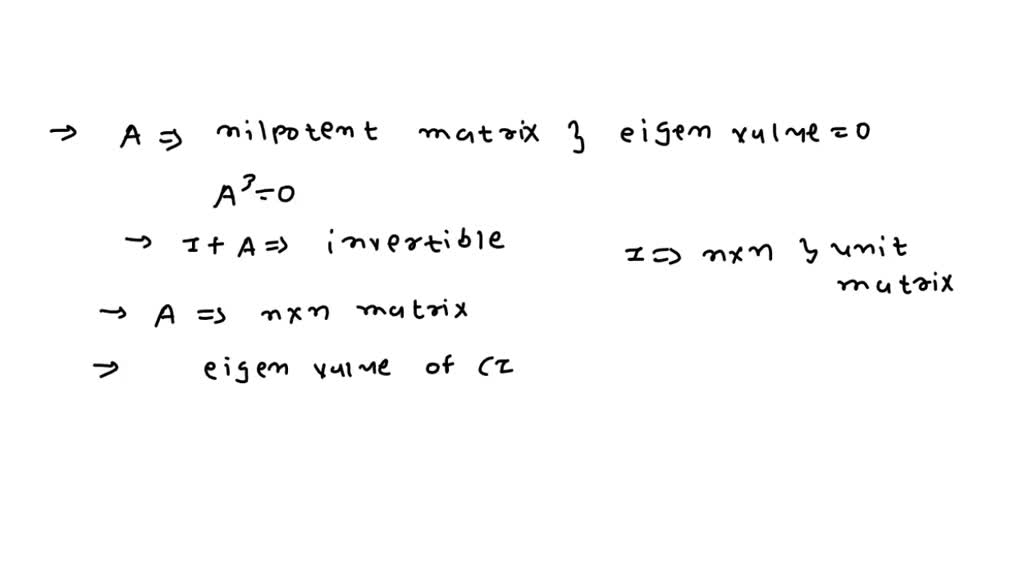 → A ⇒ nilpotent matrix } eigen value = 0
A³ = 0
→ I + A ⇒ invertible
I ⇒ n×n } unit matrix
→ A ⇒ n×n matrix
→ eigen value of (I